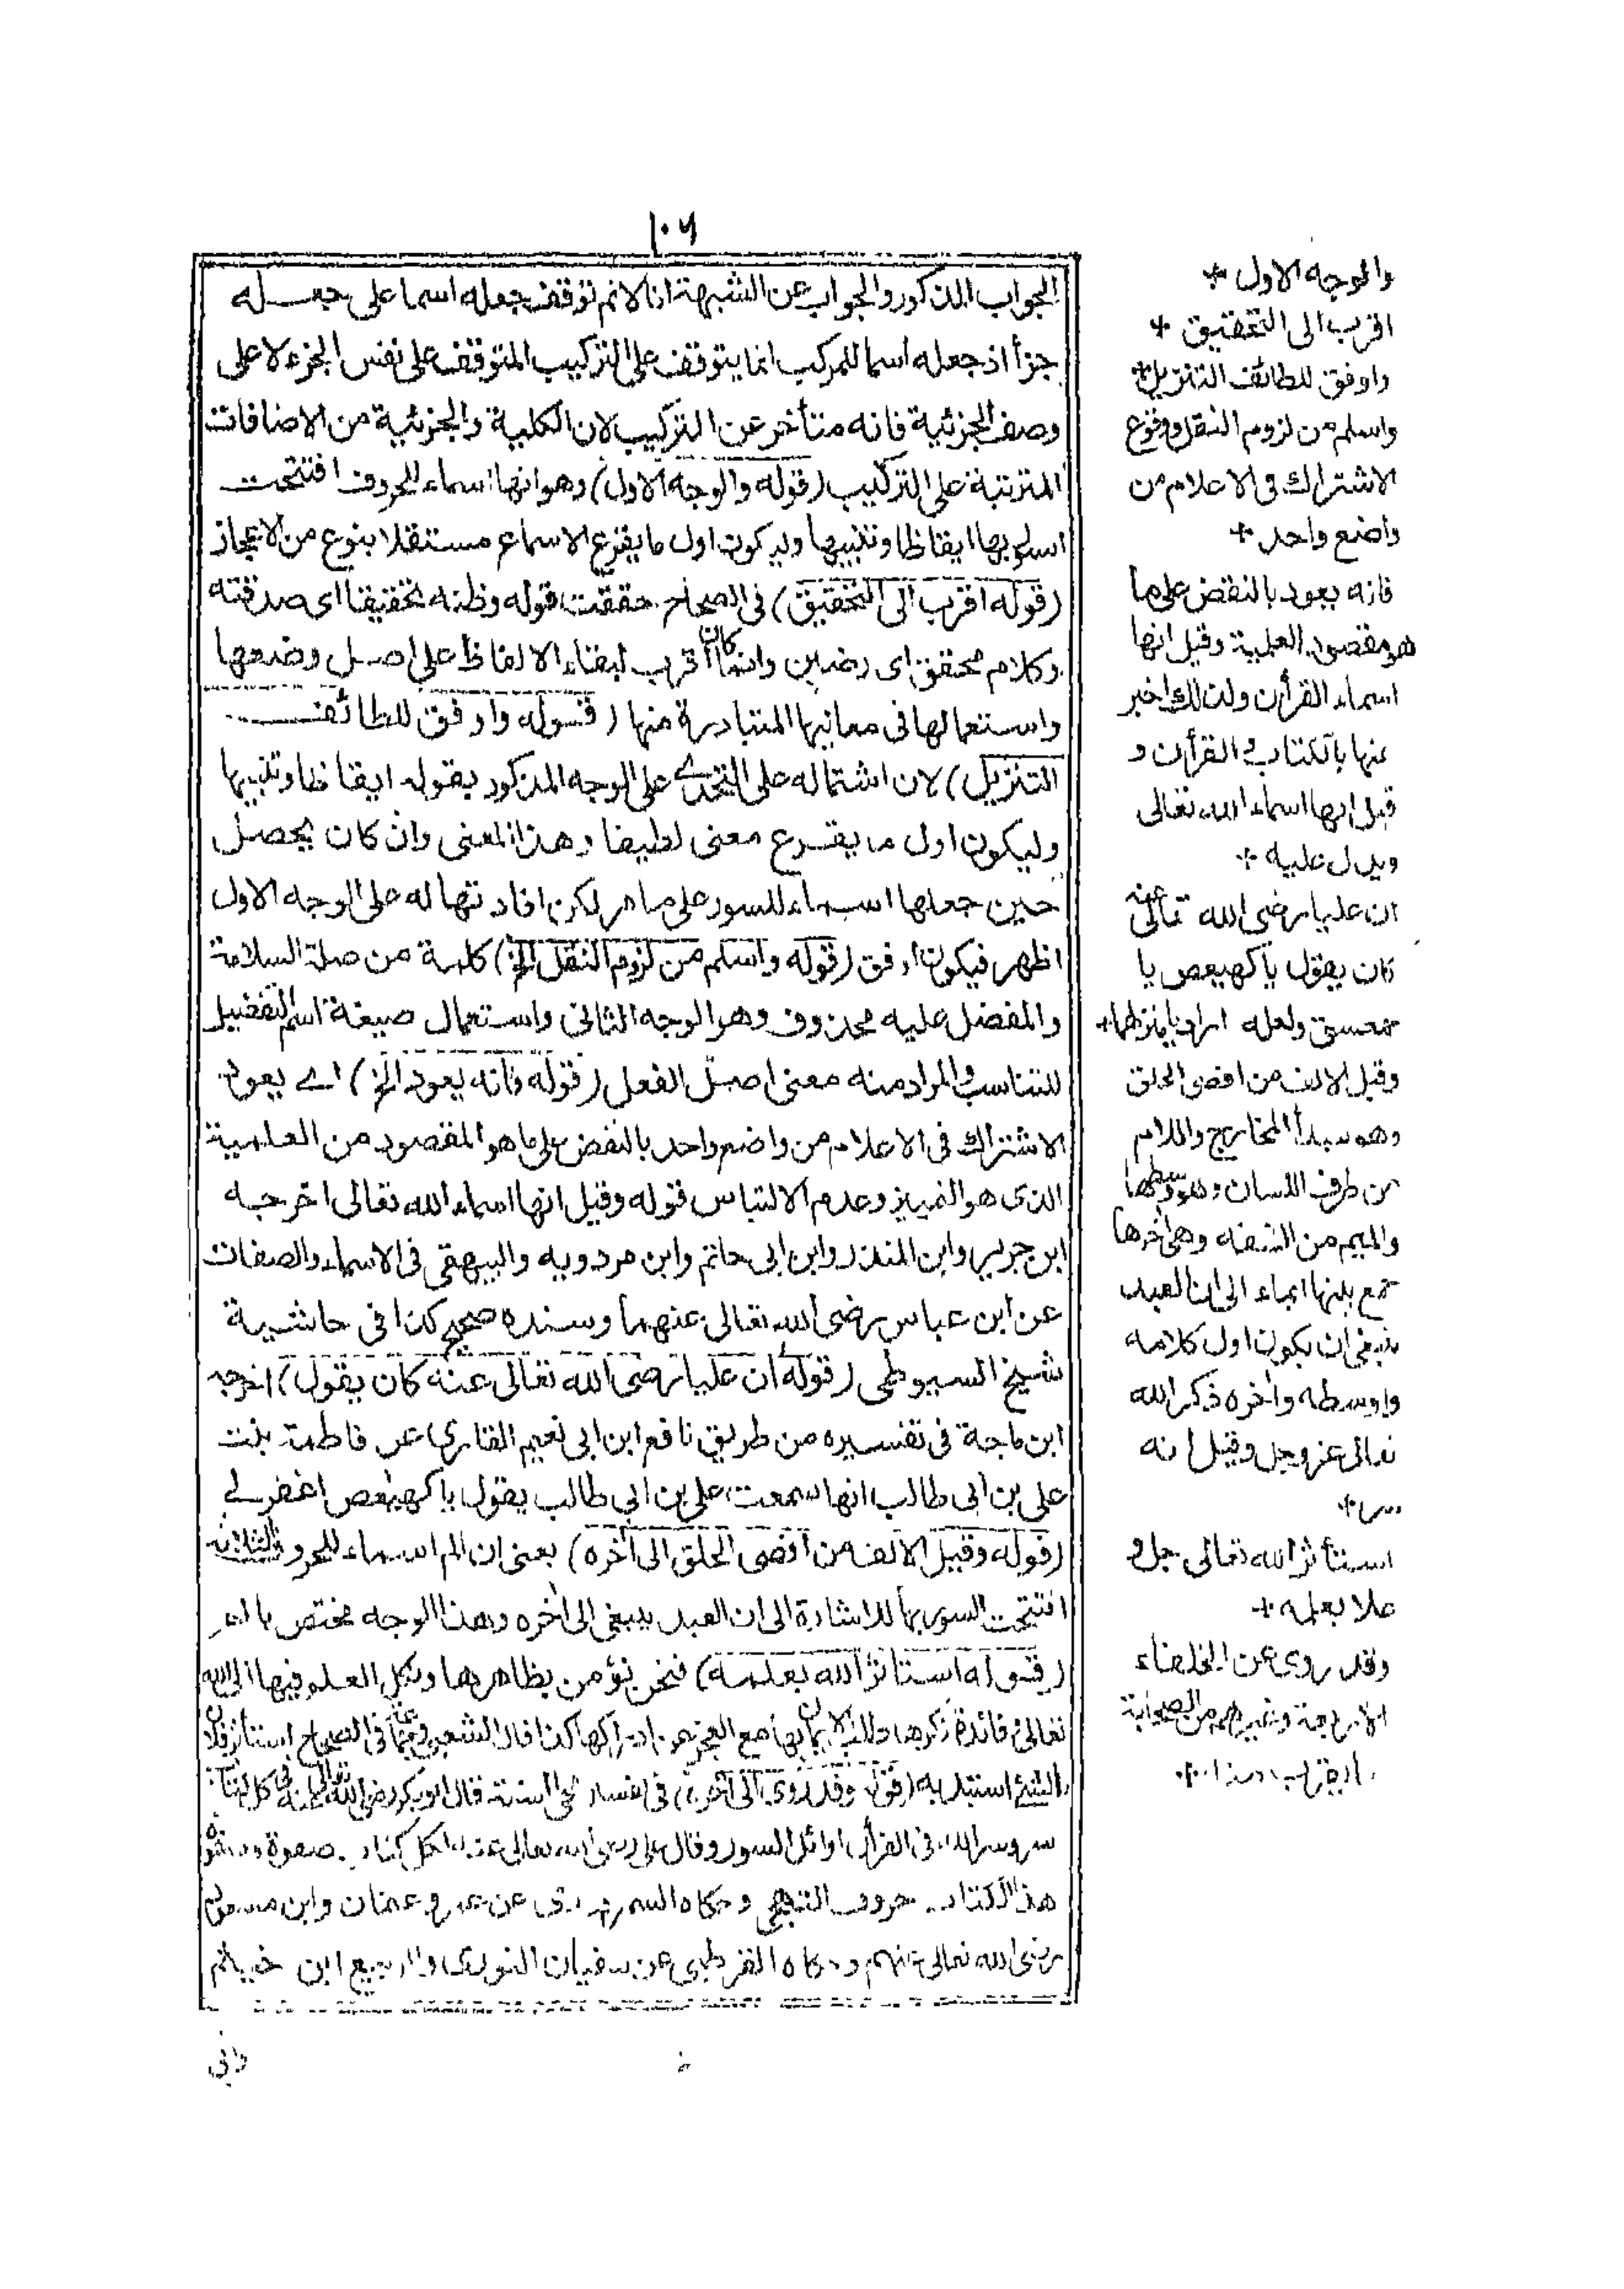 ١٠٦
الجواب المذكور والجواب عن الشبهة انا لا نم توقف جعله اسما على جعله
جزأ اذ جعله اسما للمركب انما يتوقف على التركيب المتوقف على نفس الجزء لا على
وصف الجزئية فانه متأخر عن التركيب لان الكلية والجزئية من الاضافات
المترتبة على التركيب (قوله والوجه الاول) وهو انها اسماء الحروف افتتحت
السور بها ايقاظا وتنبيها وليكون اول ما يقرع الاسماع مستقلا بنوع من الاعجاز
(قوله اقرب الى التحقيق) فى الصحاح حققت قوله وظنه تحقيقا اى صدقته
وكلام محقق اى رصين وانما كان اقرب لبقاء الالفاظ على اصل وضعها
واستعمالها فى معانيها المتبادرة منها (قوله واوفق للطائف
التنزيل) لان اشتماله على التحدے على الوجه المذكور بقوله ايقاظا وتنبيها
وليكون اول ما يقرع معنى لطيفا وهذا المعنى وان كان يحصل
حين جعلها اسماء للسور على ما مر لكن افادتها له على الوجه الاول
اظهر فيكون اوفق (قوله واسلم من لزوم النقل الخ) كلمة من صلة السلامة
والمفضل عليه محذوف وهو الوجه الثانى واستعمال صيغة اسم التفضيل
للتناسب والمراد منه معنى اصل الفعل (قوله فانه يعود الخ) اے يعود
الاشتراك فى الاعلام من واضع واحد بالنقض على ما هو المقصود من العلمية
الذى هو التمييز وعدم الالتباس قوله وقيل انها اسماء الله تعالى اخرجه
ابن جرير وابن المنذر وابن ابى حاتم وابن مردويه والبيهقى فى الاسماء والصفات
عن ابن عباس رضى الله تعالى عنهما وسنده صحيح كذا فى حاشية
شيخ السيوطى (قوله ان عليا رضى الله تعالى عنه كان يقول) اخرجه
ابن ماجة فى تفسيره من طريق نافع ابن ابى نعيم القارى عن فاطمة بنت
على بن ابى طالب انها سمعت على بن ابى طالب يقول يا كهيعص اغفر لے
(قوله وقيل الالف من اقصى الحلق الى آخره) يعنى ان الم اسماء للحروف الثلاثة
افتتحت السور بها للاشارة الى ان العبد ينبغى الى آخره وهذا الوجه مختص بالم
(قوله استأثر الله بعلمه) فنحن نؤمن بظاهرها ونكل العلم فيها الى الله
تعالى وفائدة ذكرها طلب الايمان بها مع العجز عن ادراكها كذا قال الشعبى وغيره فى الصحاح استأثر فلان
بالشئ استبد به (قوله وقد روى الى آخره) فى تفسير محى السنة قال ابو بكر رضى الله تعالى عنه فى كل كتاب
سر وسر الله فى القرآن اوائل السور وقال على رضى الله تعالى عنه لكل كتاب صفوة وصفوة
هذا الكتاب حروف التهجى وحكاه السمرقندى عن عمر وعثمان وابن مسعود
رضى الله تعالى عنهم وحكاه القرطبى عن سفيان الثورى والربيع ابن خيثم
والوجه الاول +
اقرب الى التحقيق +
واوفق للطائف التنزيل +
واسلم من لزوم النقل ووقوع
الاشتراك فى الاعلام من
واضع واحد +
فانه يعود بالنقض على ما
هو مقصود العلمية وقيل انها
اسماء القرأن ولذلك اخبر
عنها بالكتاب والقرأن و
قيل انها اسماء الله تعالى
ويدل عليه +
ان عليا رضى الله تعالى عنه
كان يقول يا كهيعص يا
حمعسق ولعله اراد يا منزلهما +
وقيل الالف من اقصى الحلق
وهو مبدأ المخارج واللام
من طرف اللسان وهو وسطها
والميم من الشفه وهى آخرها
جمع بينها ايماء الى ان العبد
ينبغى ان يكون اول كلامه
واوسطه وآخره ذكر الله
تعالى عز وجل وقيل انه
سر +
استأثر الله تعالى جل و
علا بعلمه +
وقد روى عن الخلفاء
الاربعة وغيرهم من الصحابة
ما يقرب من هذا +